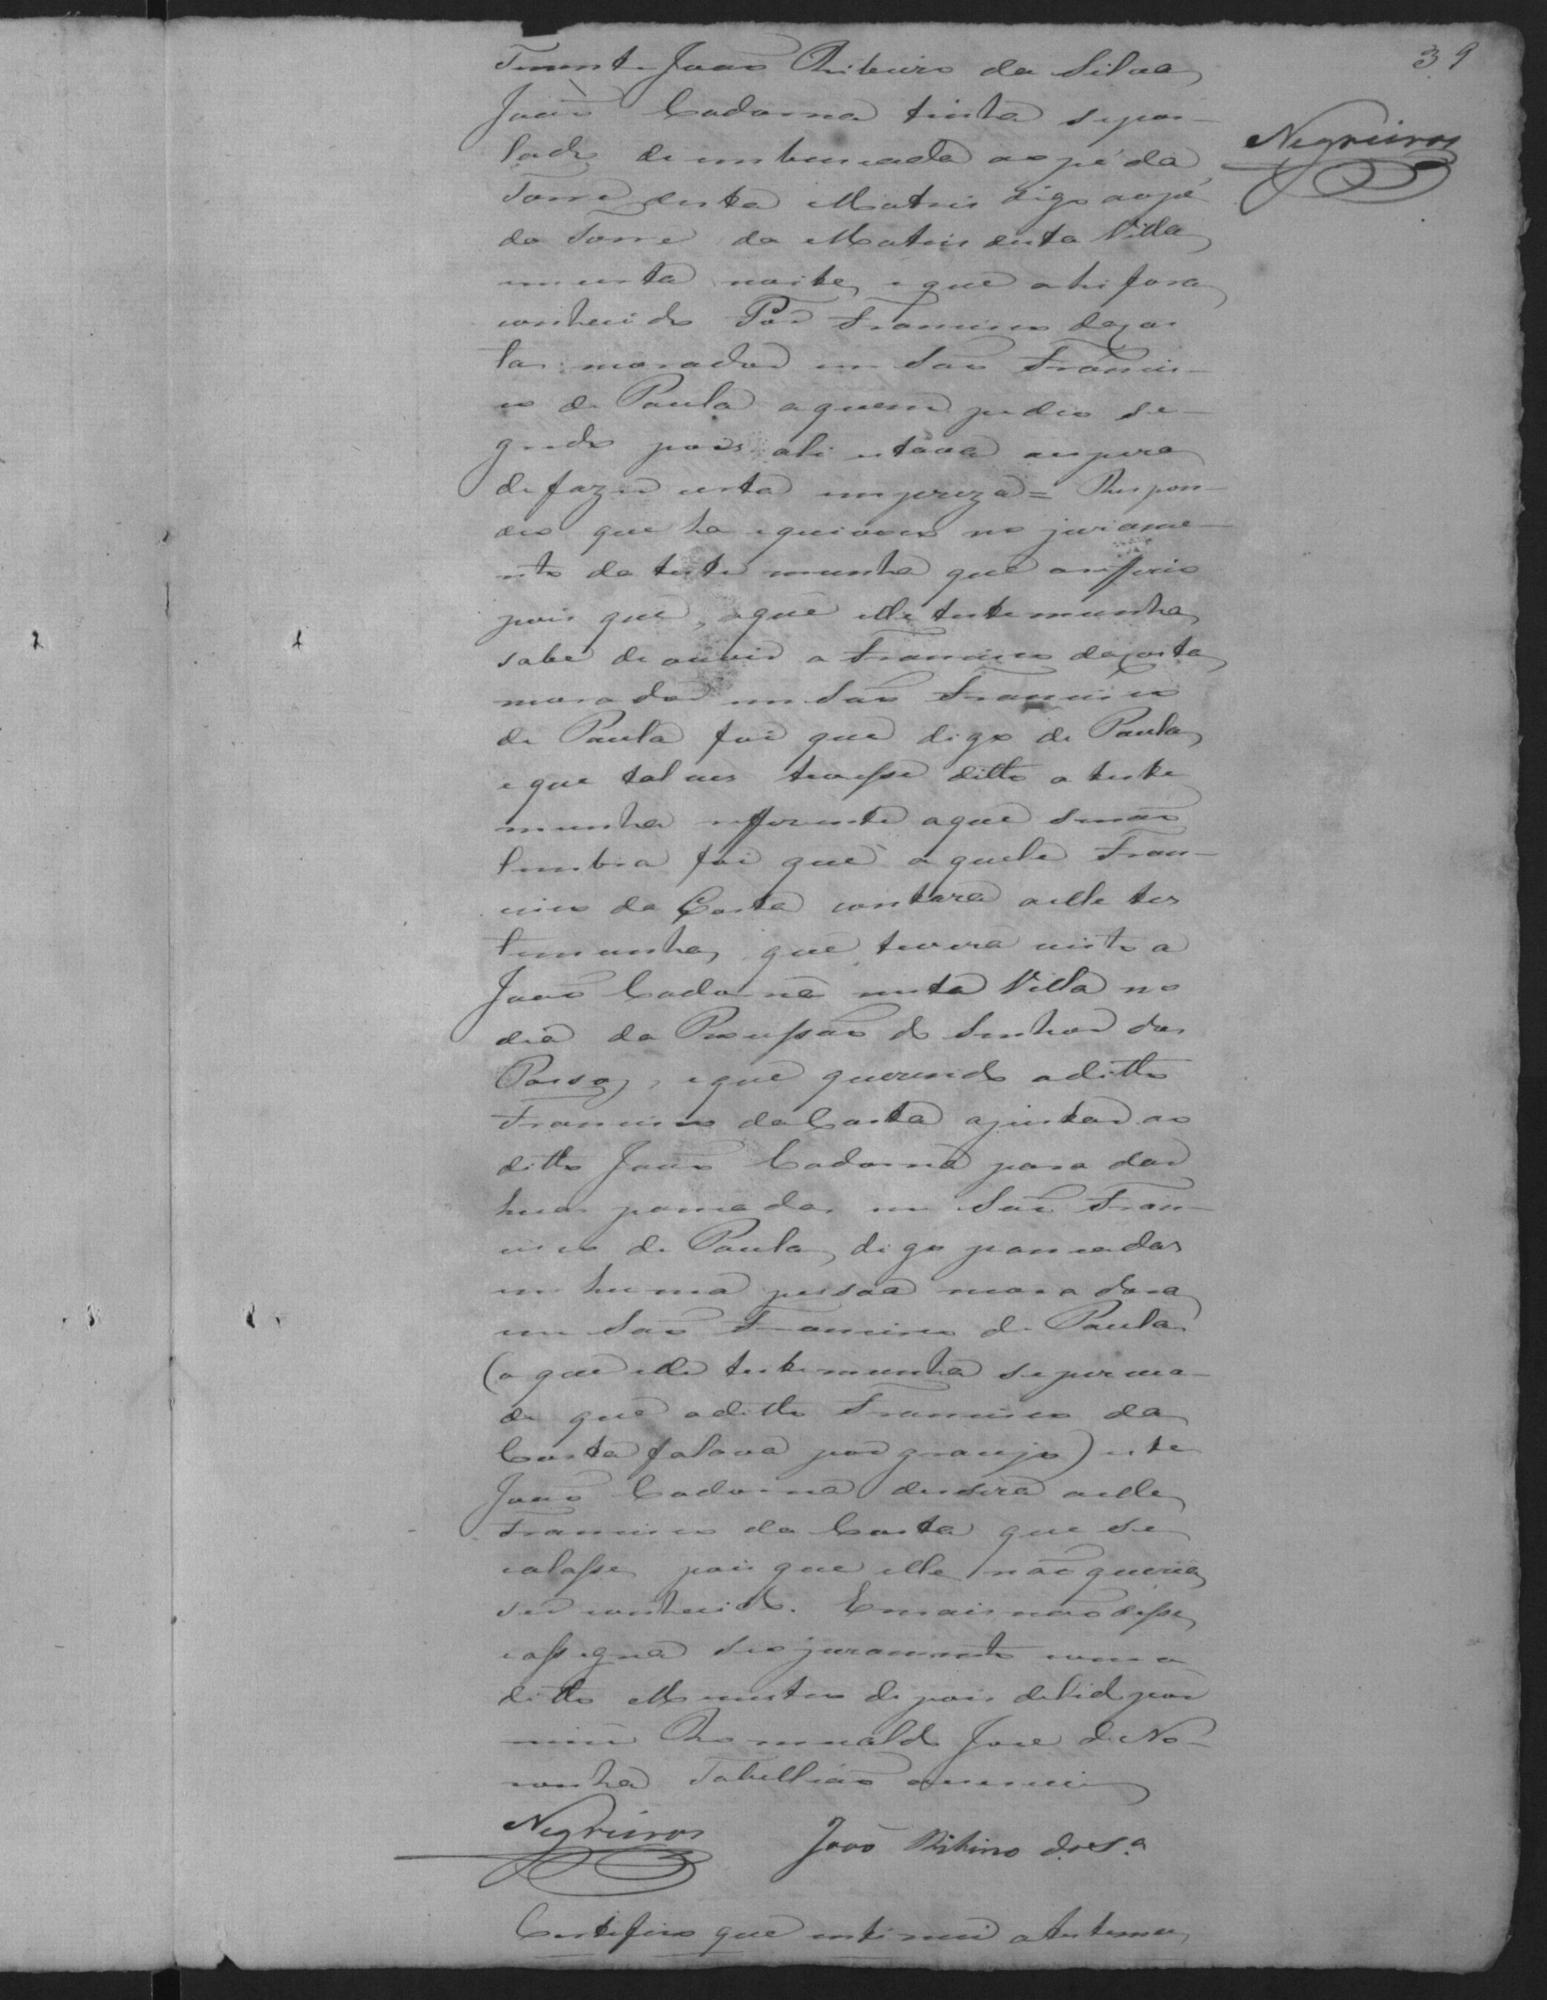 39
Negreiros
Tenente João Ribeiro da Silva,
João Cadorna tinha se pos-
tado de emboscada ao pé da
Torre desta Matris digo ao pé
da Torre da Matris desta Villa,
em certa noite, e que ahi fora
conhecido Por Francisco da Cos
ta morador em São Francis-
co de Paula aquem pedio se-
gredo pois ali estava a espera
de fazer certa impreza = Respon-
deo que ha equivoco no jurame-
nto da teste munha que o refferio
pois que, o que elle testemunha
sabe de ouvir a Francisco da Costa
morador em São Francisco
de Paula foi que digo de Paula,
e que talves tivesse ditto a teste
munha refferente a que se não
lembra foi que aquele Fran-
cisco da Costa contara a elle tes
temunha, que tivera visto a
João Cadorna nesta Villa no
dia da Prossissão do Senhor dos
Passos, e que querendo o ditto
Francisco da Costa ajustar ao
ditto João Cadorna para dar
huas pancadas em São Fran-
cisco de Paula, digo pancadas
em huma pessoa moradora
em São Francisco de Paula
(o que elle testemunha se persua-
de que o ditto Francisco da
Costa falava por gracejo) este
João Cadorna dissera a elle
Francisco da Costa que se
calasse, pois que elle não queria
ser conhecido. E mais não disse,
e assigna seo juramento com o
ditto Menistro depois de lido por
mim Romualdo Jose de No-
ronha Tabellião o escrevi
Negreiros João Ribeiro da S.ª
Certifico que intimei a testemu